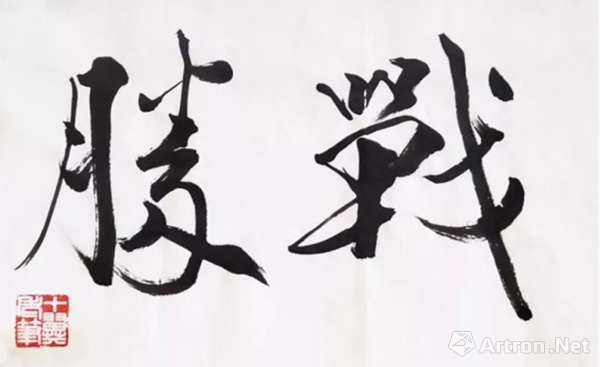 戰勝
Artron.Net